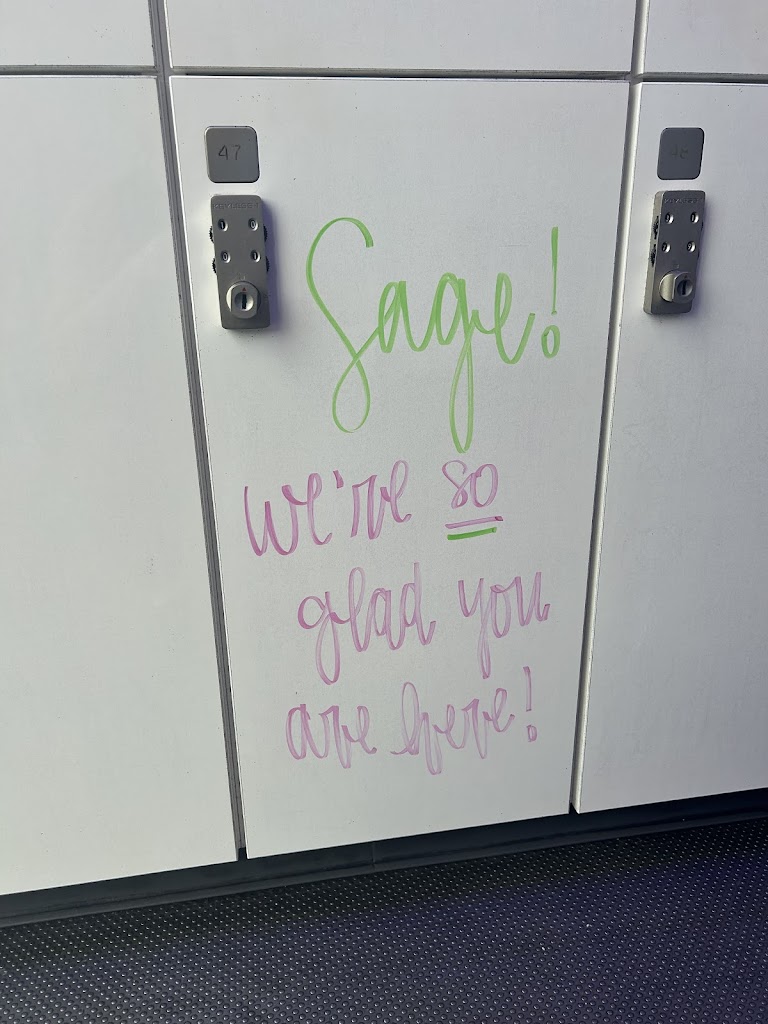 47
48
Sage!
We're so
glad you
are here!